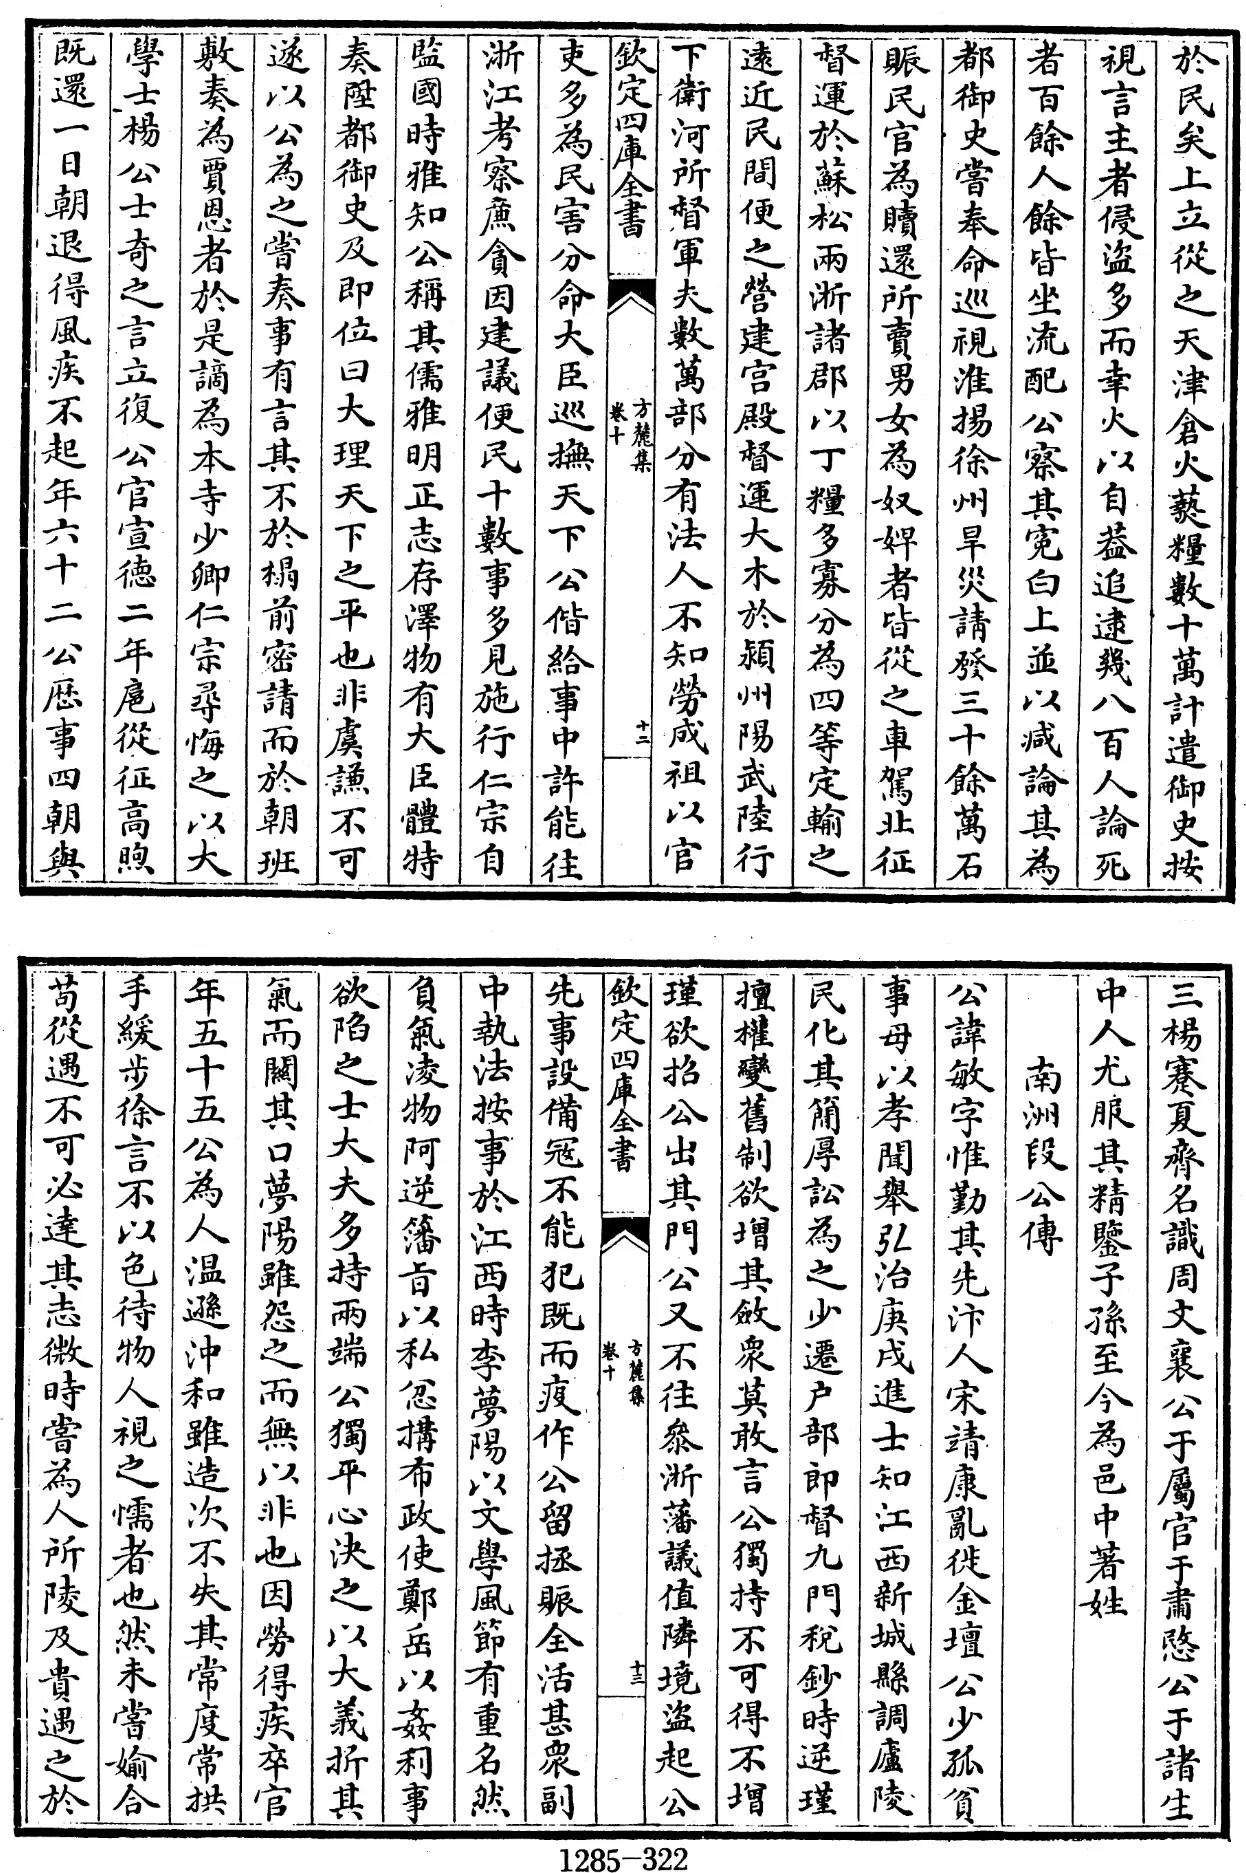 於民矣上立從之天津倉火爇糧數十萬計遣御史按
視言主者侵盜多而幸火以自葢追逮幾八百人論死
者百餘人餘皆坐流配公察其寃白上並以減論其為
都御史嘗奉命巡視淮揚徐州旱災請發三十餘萬石
賑民官為贖還所賣男女為奴婢者皆從之車駕北征
督運於蘇松兩浙諸郡以丁糧多寡分為四等定輸之
遠近民間便之營建宫殿督運大木於潁州陽武陸行
下衛河所督軍夫數萬部分有法人不知勞成祖以官
欽定四庫全書
方麓集
卷十
十二
吏多為民害分命大臣巡撫天下公偕給事中許能往
浙江考察廉貪因建議便民十數事多見施行仁宗自
監國時雅知公稱其儒雅明正志存澤物有大臣體特
奏陞都御史及即位曰大理天下之平也非虞謙不可
遂以公為之嘗奏事有言其不於榻前密請而於朝班
敷奏為賈恩者於是謫為本寺少卿仁宗尋悔之以大
學士楊公士奇之言立復公官宣德二年扈從征高煦
既還一日朝退得風疾不起年六十二公歷事四朝與
三楊蹇夏齊名識周文襄公于屬官于肅愍公于諸生
中人尤服其精鑒子孫至今為邑中著姓
南洲段公傳
公諱敏字惟勤其先汴人宋靖康亂徙金壇公少孤貧
事母以孝聞舉弘治庚戌進士知江西新城縣調廬陵
民化其簡厚訟為之少遷户部郎督九門稅鈔時逆瑾
擅權變舊制欲增其斂衆莫敢言公獨持不可得不增
瑾欲招公出其門公又不往叅浙藩議值隣境盜起公
欽定四庫全書
方麓集
卷十
十三
先事設備冦不能犯既而疫作公留拯賑全活甚衆副
中執法按事於江西時李夢陽以文學風節有重名然
負氣凌物阿逆籓旨以私忿搆布政使鄭岳以姦利事
欲陷之士大夫多持兩端公獨平心決之以大義折其
氣而關其口夢陽雖怨之而無以非也因勞得疾卒官
年五十五公為人温遜沖和雖造次不失其常度常拱
手緩步徐言不以色待物人視之懦者也然未嘗媮合
苟從遇不可必達其志微時嘗為人所陵及貴遇之於
1285-322